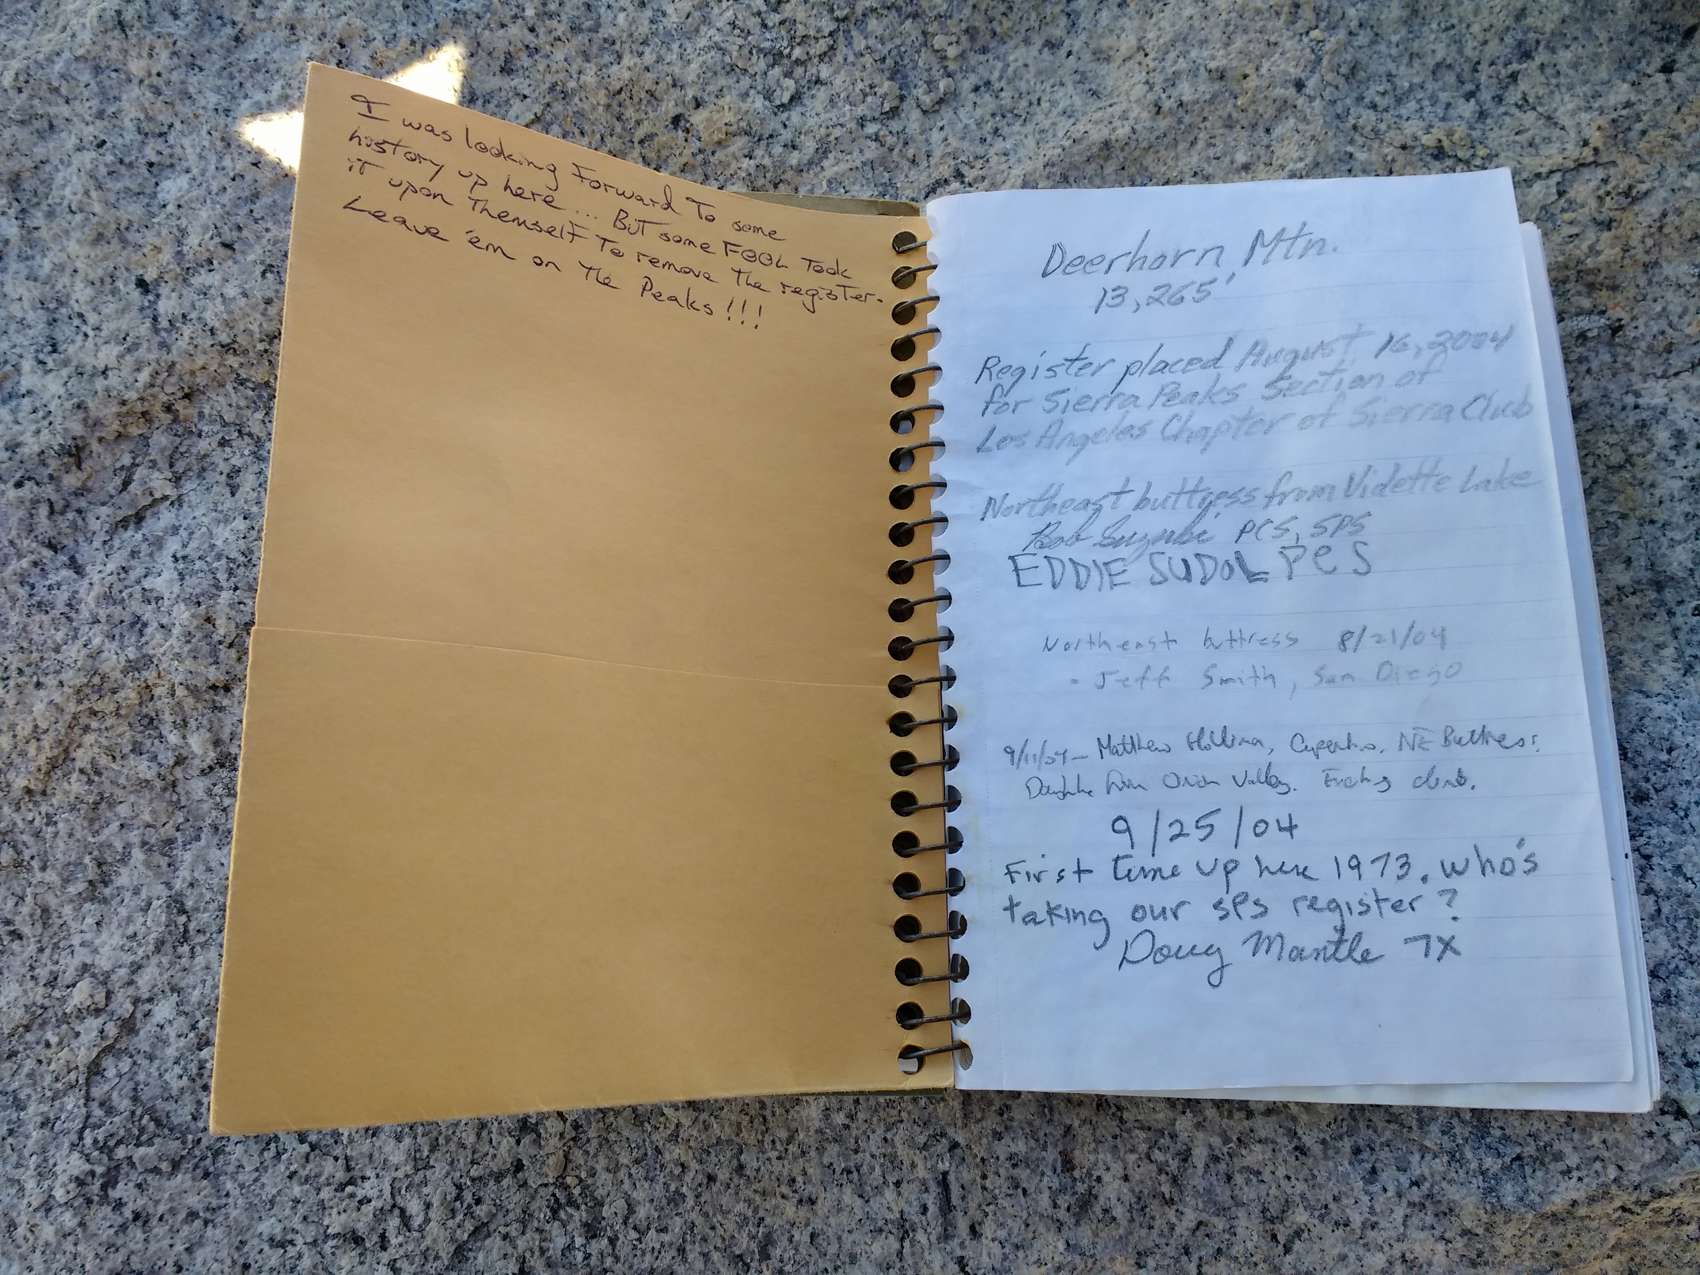 I was looking Forward To some
history up here ... But some FOOL Took
iT upon Themself To remove The regisTer.
Leave 'em on The Peaks!!!
Deerhorn Mtn.
13,265'
Register placed August 16, 2004
for Sierra Peaks Section of
Los Angeles Chapter of Sierra Club
Northeast buttress from Vidette Lake
Bob Suzuki PCS, SPS
EDDIE SUDOL PCS
Northeast buttress 8/21/04
- Jeff Smith, San Diego
9/11/04 - Matthew Cupertino, NE Buttress.
from Valley. climb.
9/25/04
First time up here 1973. Who's
taking our SPS register?
Doug Mantle 7X